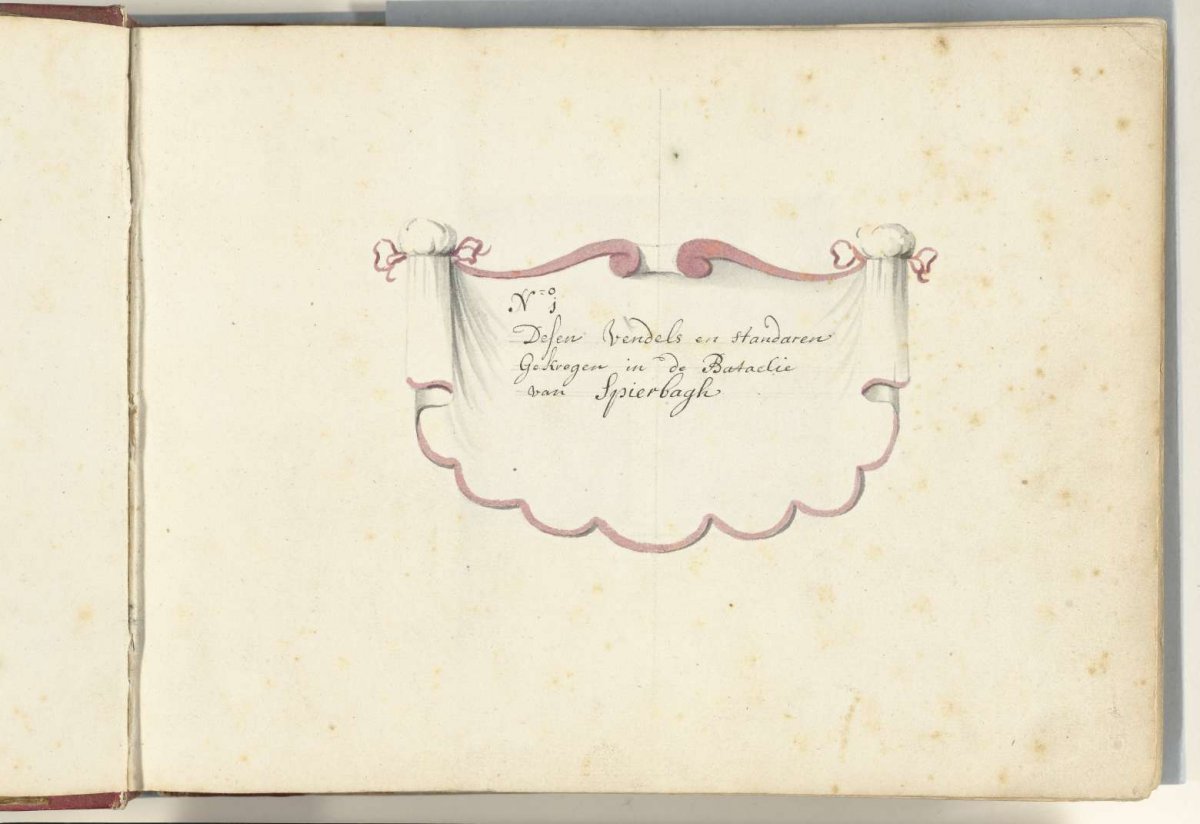 N:o 1
Desen Vendels en standaren
Gekregen in de Bataelie
van Spierbagh